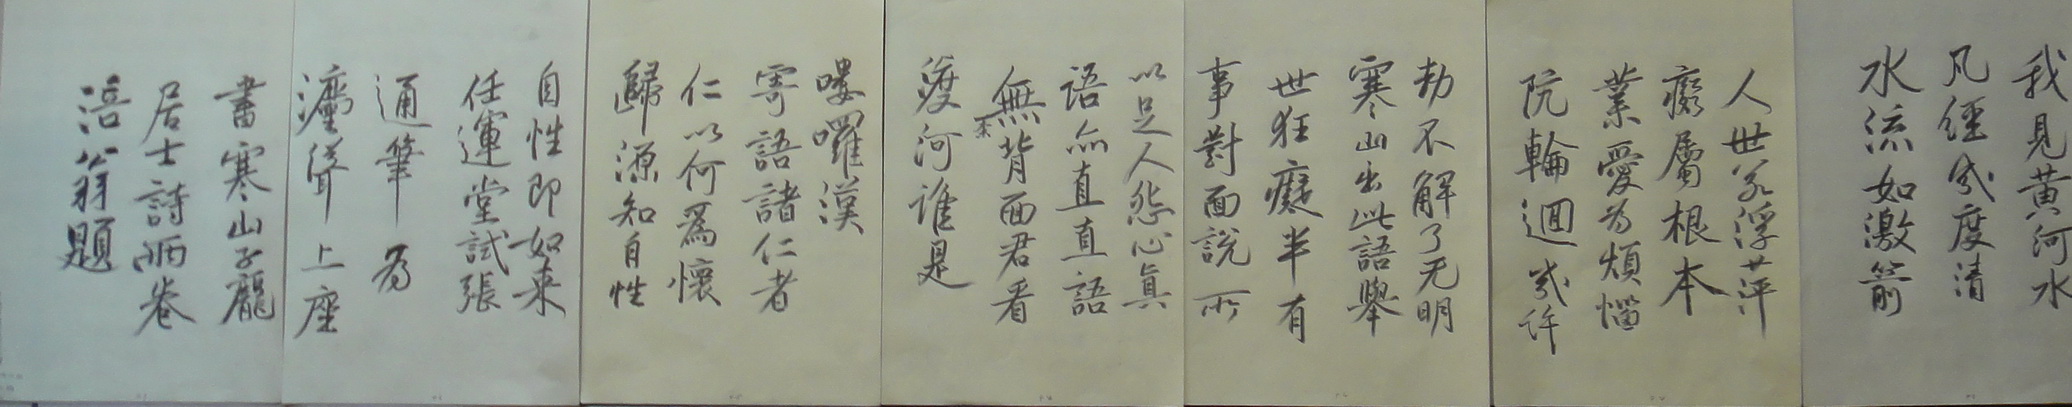 我見黄河水
凡經㡬度清
水流如激箭
人世若浮萍
癡屬根本
業愛为煩惱
阮輪迴㡬许
劫不解了无明
寒山出此語舉
世狂癡半有
事對面說所
以足人怨心真
語亦直直語
無背面君看
渡河谁是
嘍囉漢
寄語諸仁者
仁以何爲懷
歸源知自性
自性即如来
任運堂試張
通筆为
上座
書寒山子龐
居士詩兩卷
涪翁題